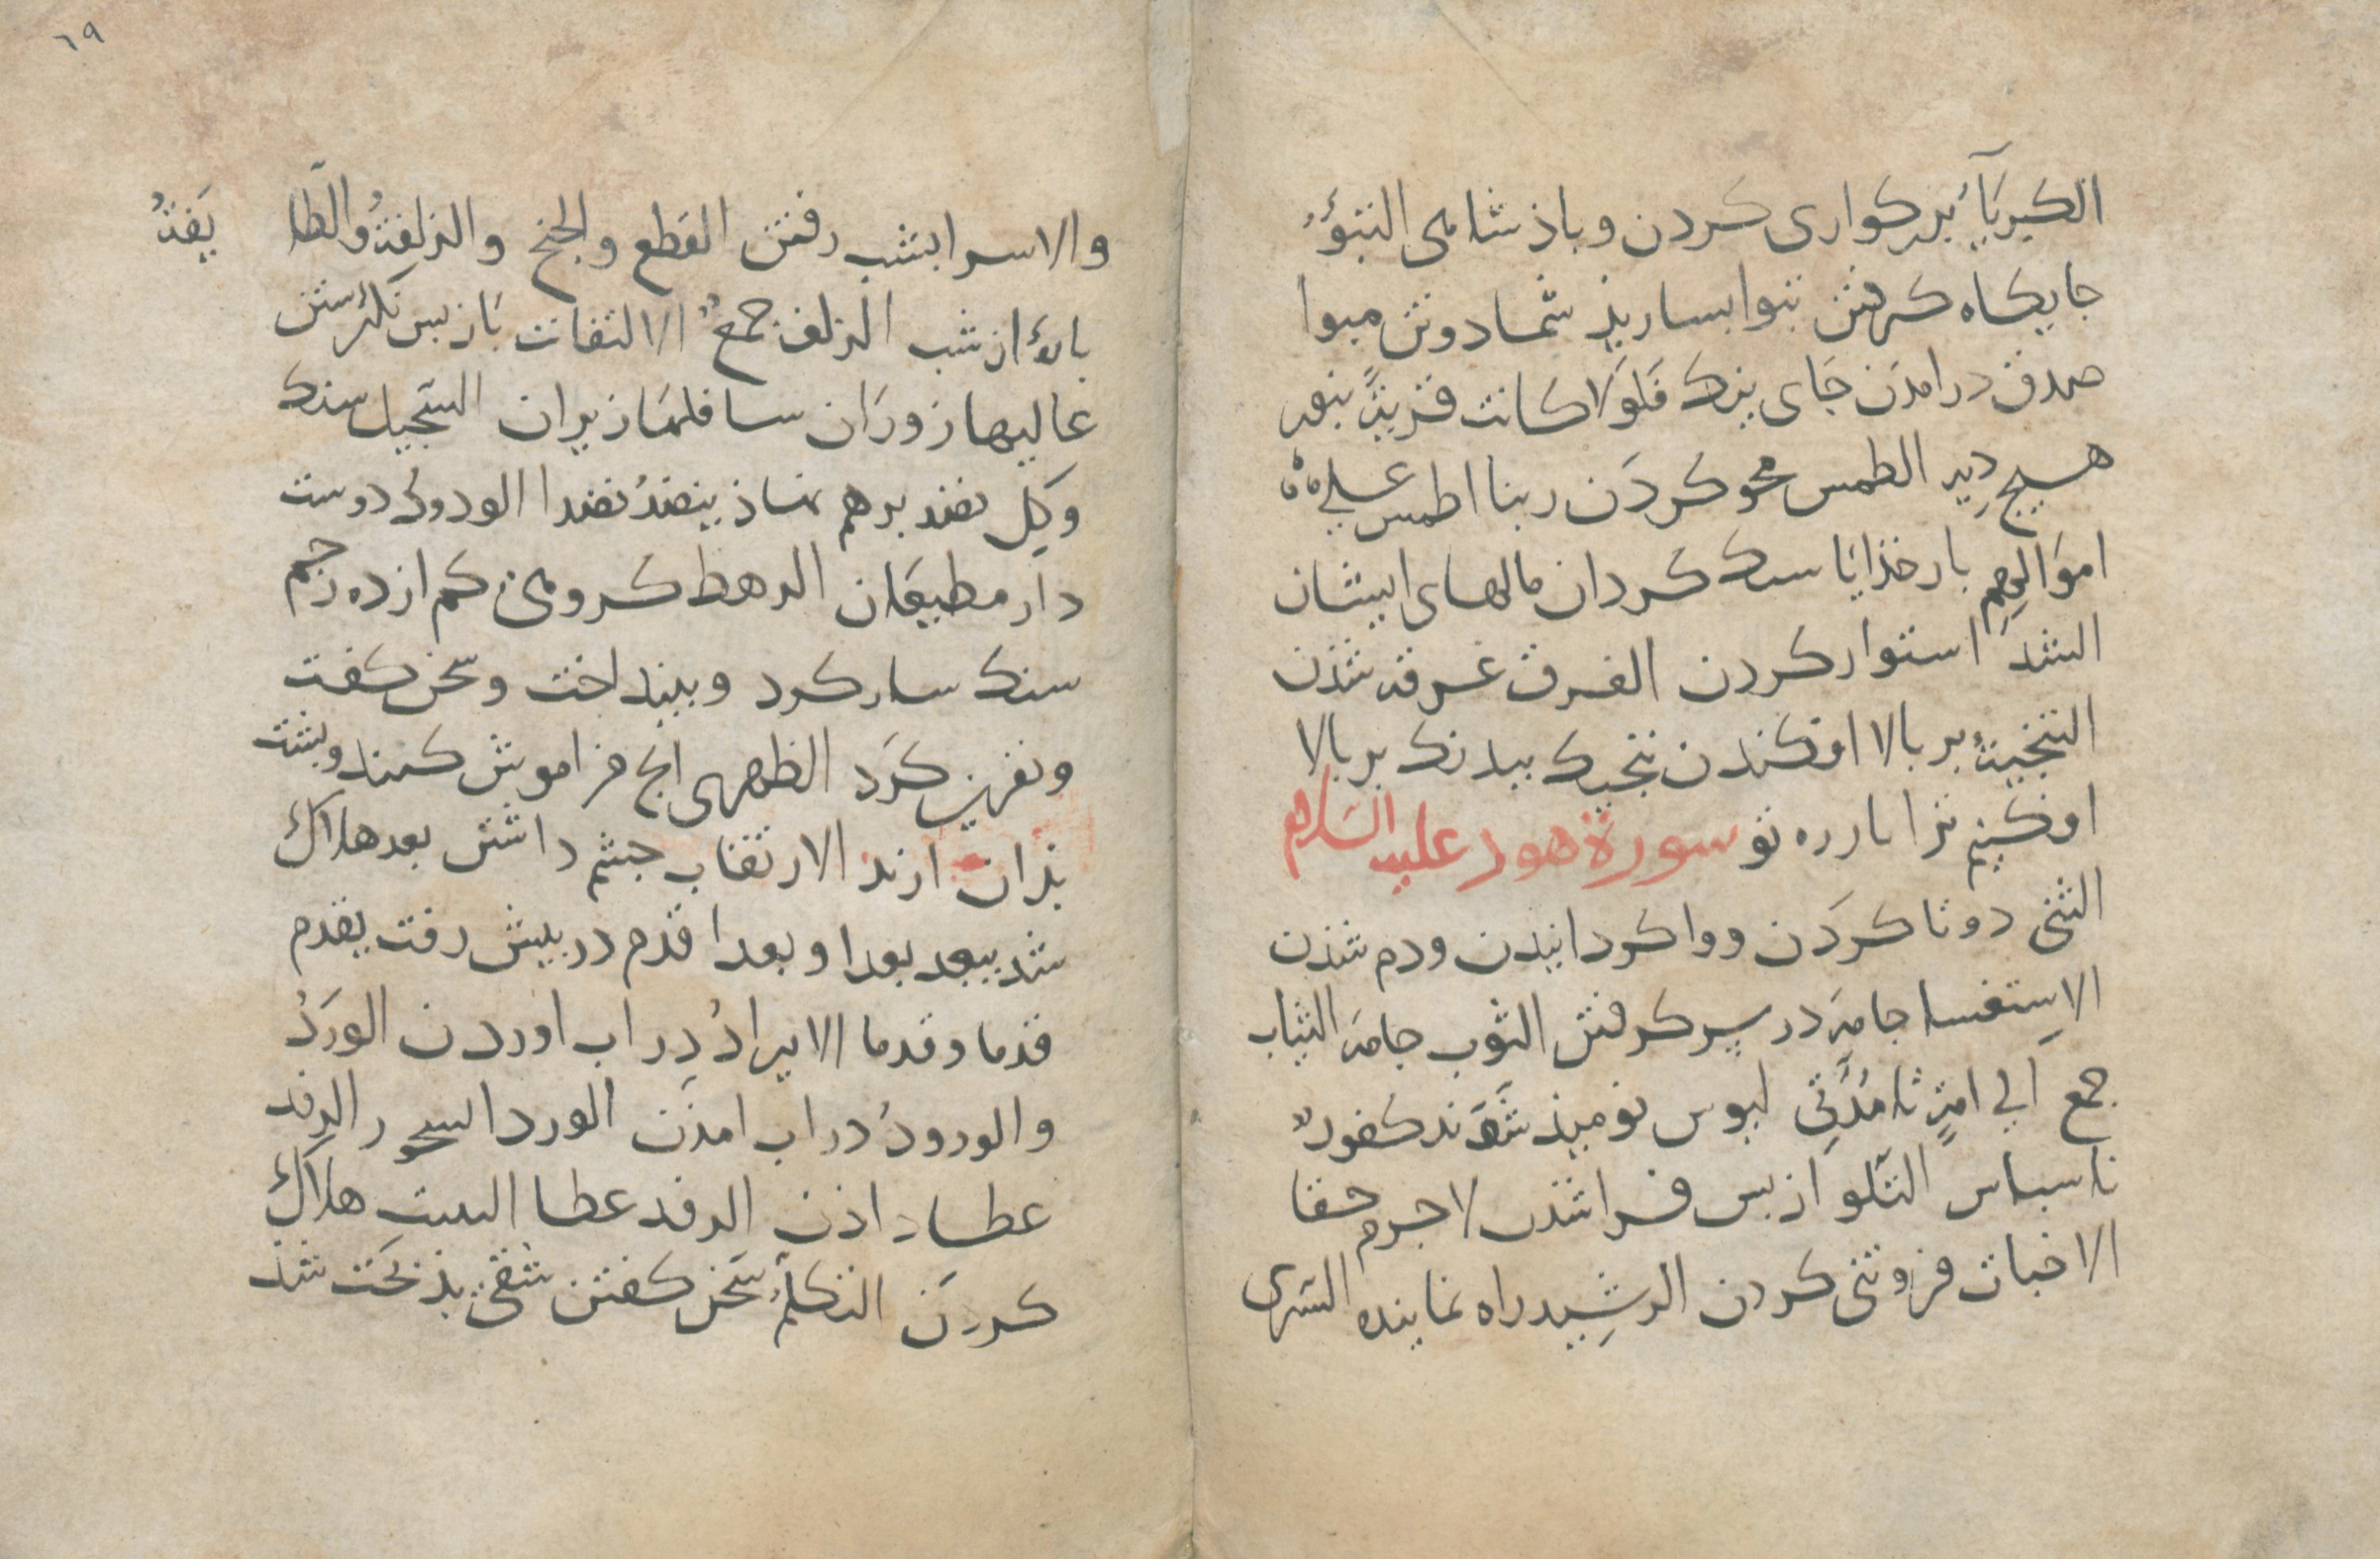 الكبريآءُ بزركواری كردن و باذشاهی التبوُّءُ
جايكاه كرفتن تبوا بساريذ شما دوتن مبوا
صدق درامدن جَای نيك فَلَوْلا كانت قريةٌ بنود
هيچ دِيه الطمس محو كردَن ربنا اطمس علی
اموَالِهِم بار خذايَا سنك كردان مالهای ايشان
الشد استوار كردن الغرق غرقه شذن
التنجيةُ بر بالا افكندن ننجيك ببدنك بر بالا
افكنيم ترا تو سورة هود عليه السلام
الثنی دوتا كردَن و وا كردانيدن ودم شذن
الاِستغشا جامَه در سِر كرفتن الثوب جامَه الثياب
جمع الی امةٍ تا مُدَّتی ليوس نوميذ شَوَند كفورٌ
ناسباس التلو از بس فرا شذن لا جرم حقا
الاخبات فروتنی كردن الرشِيد راه نماينده
والاسرا بشب رفتن القطع والجنح والزلفةُ والطَّا يَفةُ
باره از شب الزلف جمعٌ الالتفات بَاز بس نكرستن
عاليها زورَان سافلهَا زيران السَّجيل سنك
وَكِل نضد برهم نهاذ ينضدُ نضدا الودودُ دوست
دار مطيعَان الرهط كروهی كم از ده رجم
سنك سار كرد و بينداخت وسخن كفت
ونفرين كرَد الظهری انج فراموش كنند وبشت
بذان ارند الارتقاب جشم داشتن بعد هلاك
شد يبعد بعدا و بعدا قدم در بيش رفت يقدم
قدما و قدما الايرادُ دِر اب اوردن الورَدُ
والورودُ در اب امذَن الورد الرفد
عطا داذن الرفد عطا هلاك
كردَن التكلمُ سَخن كفتن شقی بذبخت شذ
٦٩